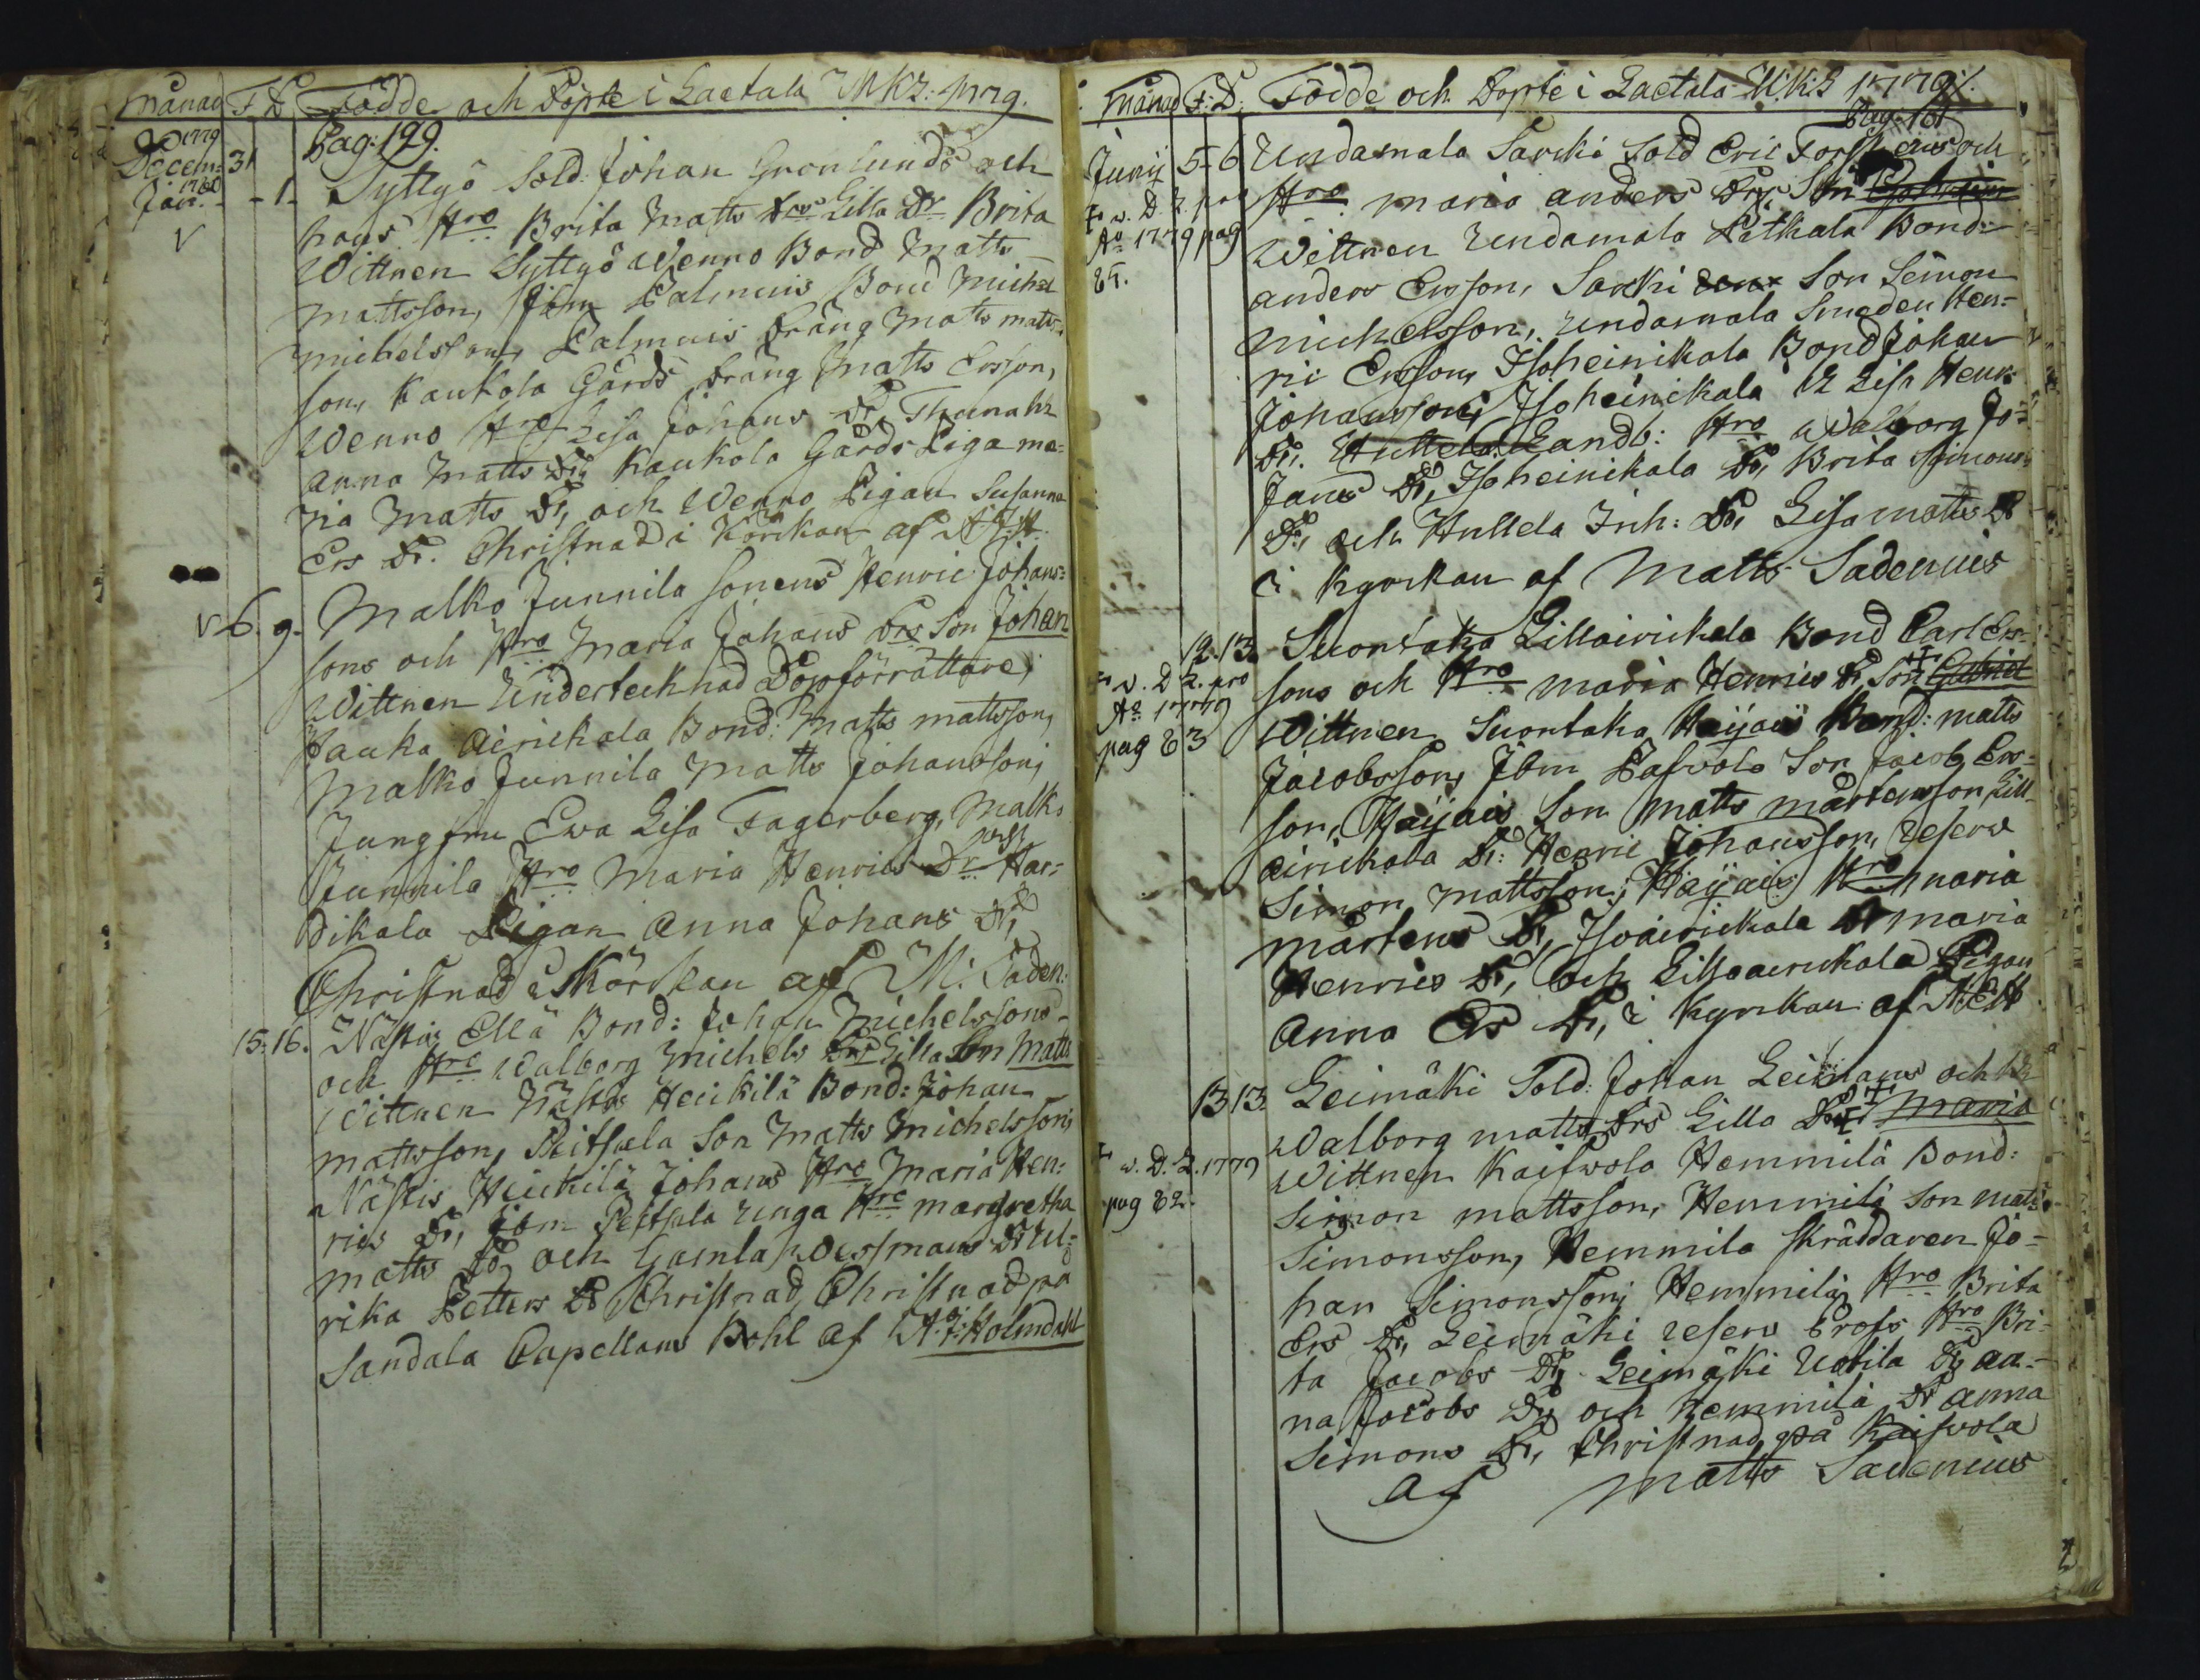 Månad F. D. Födde och Döpte i Laetala MKS: 1779.
Ao 1779 Pag: 199.
Decem: 31
Jan. 1780 - 1. Syttyö Sold: Johan Grönlunds och
hans Hro Brita Matts Drs Lilla Dr Brita
Wittnen Syttyö Wenno Bond Matts
Mattsson, Jbm Palmuis Bond Michel
Michelsson, Palmuis Dräng Matts Matts-
son, Kaukola Gårds Dräng Matts Ersson,
Wenno Hro Lisa Johans Dr,
Anna Matts Dr, Kaukola Gårds Piga Ma-
ria Matts Dr, och Wenno Pigan Susanna
Ers Dr. Christnad i Körckan af
V 6. 9. Malko Junnila Sonens Henric Johans=
sons och Hro Maria Johans Drs Son Johan
Wittnen Undertecknad Dopförrättare,
Hauka Äirickala Bond: Matts Mattsson,
Malko Junnila Matts Johansson,
Jungfru Ewa Lisa Fagerberg, Malko
Junnila Hro Maria Henrics Dr Har=
dikala Pigan Anna Johans Dr,
Christnad i Körckan af M: Saden:
15. 16. Nästis Ellä Bond: Johan Michelssons
och Hro Walborg Michels Drs Lilla Son Matts
Wittnen Nästis Heickilä Bond: Johan
Mattsson, Peitsala Son Matts Michelsson,
Nästis Heickilä Johans Hro Maria Hen:
rics Dr, Jbm Peitsala Unga Hro Margretha
Matts Dr, och Gamla Wessmans Dr Ul=
rika Petters Dr Christnad Christnad på
Sandala Capellans Bohl af A: J: Holmdahl

Månad F: D: Födde och Döpte i Laetala MKS 1779.
Pag. 181
Junij 5 - 6 Undamala Sarcki Sold Eric Forss ens och
F w. D. L. pro Hro Maria Anders Drs, Son
Ao 1779 pag Wittnen Undamala Petkala Bond:
85. Anders Ersson, Sarcki Son Simon
Michelsson, Undamala Smeden Hen=
ric Ersson, Isoheinikala Bond Johan
Johansson, Isoheinikala Lisa Henr:
Dr. Huttela Landb: Hro Walborg Jo=
hans Dr, Isoheinikala Dr, Brita Simons
Dr, och Huttela Inh: Dr, Lisa Matts Dr
i kyrckan af Matts Sadenius
12. 13. Suontaka Lilläirickala Bond Carl Ers=
F w. D L. pro sons och Hro Maria Henrics Dr Son Gabriel
Ao 1779 Wittnen Suontaka Häijäis Bond: Matts
pag 83 Jacobsson, Jbm Pafvola Son Jacob Ers=
son, Häijäis Son Matts Mårtensson, Lill-
äirickala Dr: Henric Johansson, Reserv
Simon Mattsson, Häijäis Hro Maria
Mårtens Dr, Isoäirickala Dr Maria
Henrics Dr, och Lilläirickala Pigan
Anna Ers Dr, i kyrckan af
13 13 Leimäki Sold: Johan Leimans och Hr
Walborg Matts Drs Lilla Dr Maria
F w. D. L. 1779 Wittnen Kaifwola Hemmilä Bond:
pag 82. Simon Mattsson, Hemmilä Son Matts
Simonsson, Hemmilä Skräddaren Jo=
han Simonsson, Hemmilä Hro Brita
Ers Dr, Leimäki Reserv Hro Bri-
ta Jacobs Dr, Leimäki Uotila Dr, An-
na Jacobs Dr, och Hemmilä Dr Anna
Simons Dr, Christnad på Kaifwola
af Matts Sadenius